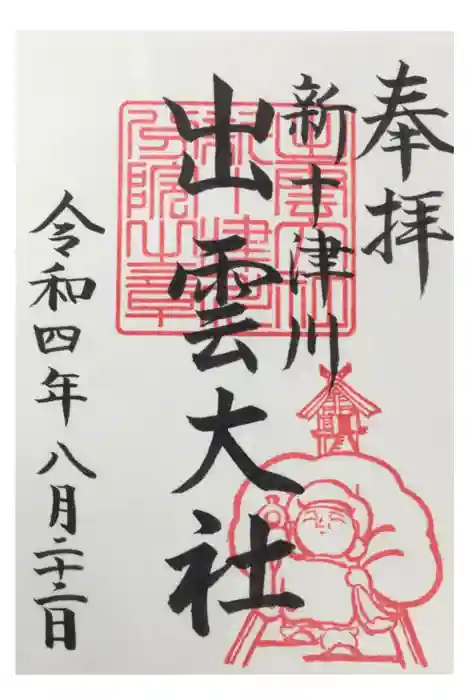 奉拝
新十津川
出雲大社
令和四年八月二十二日
出雲大社
新十津川
分院之章